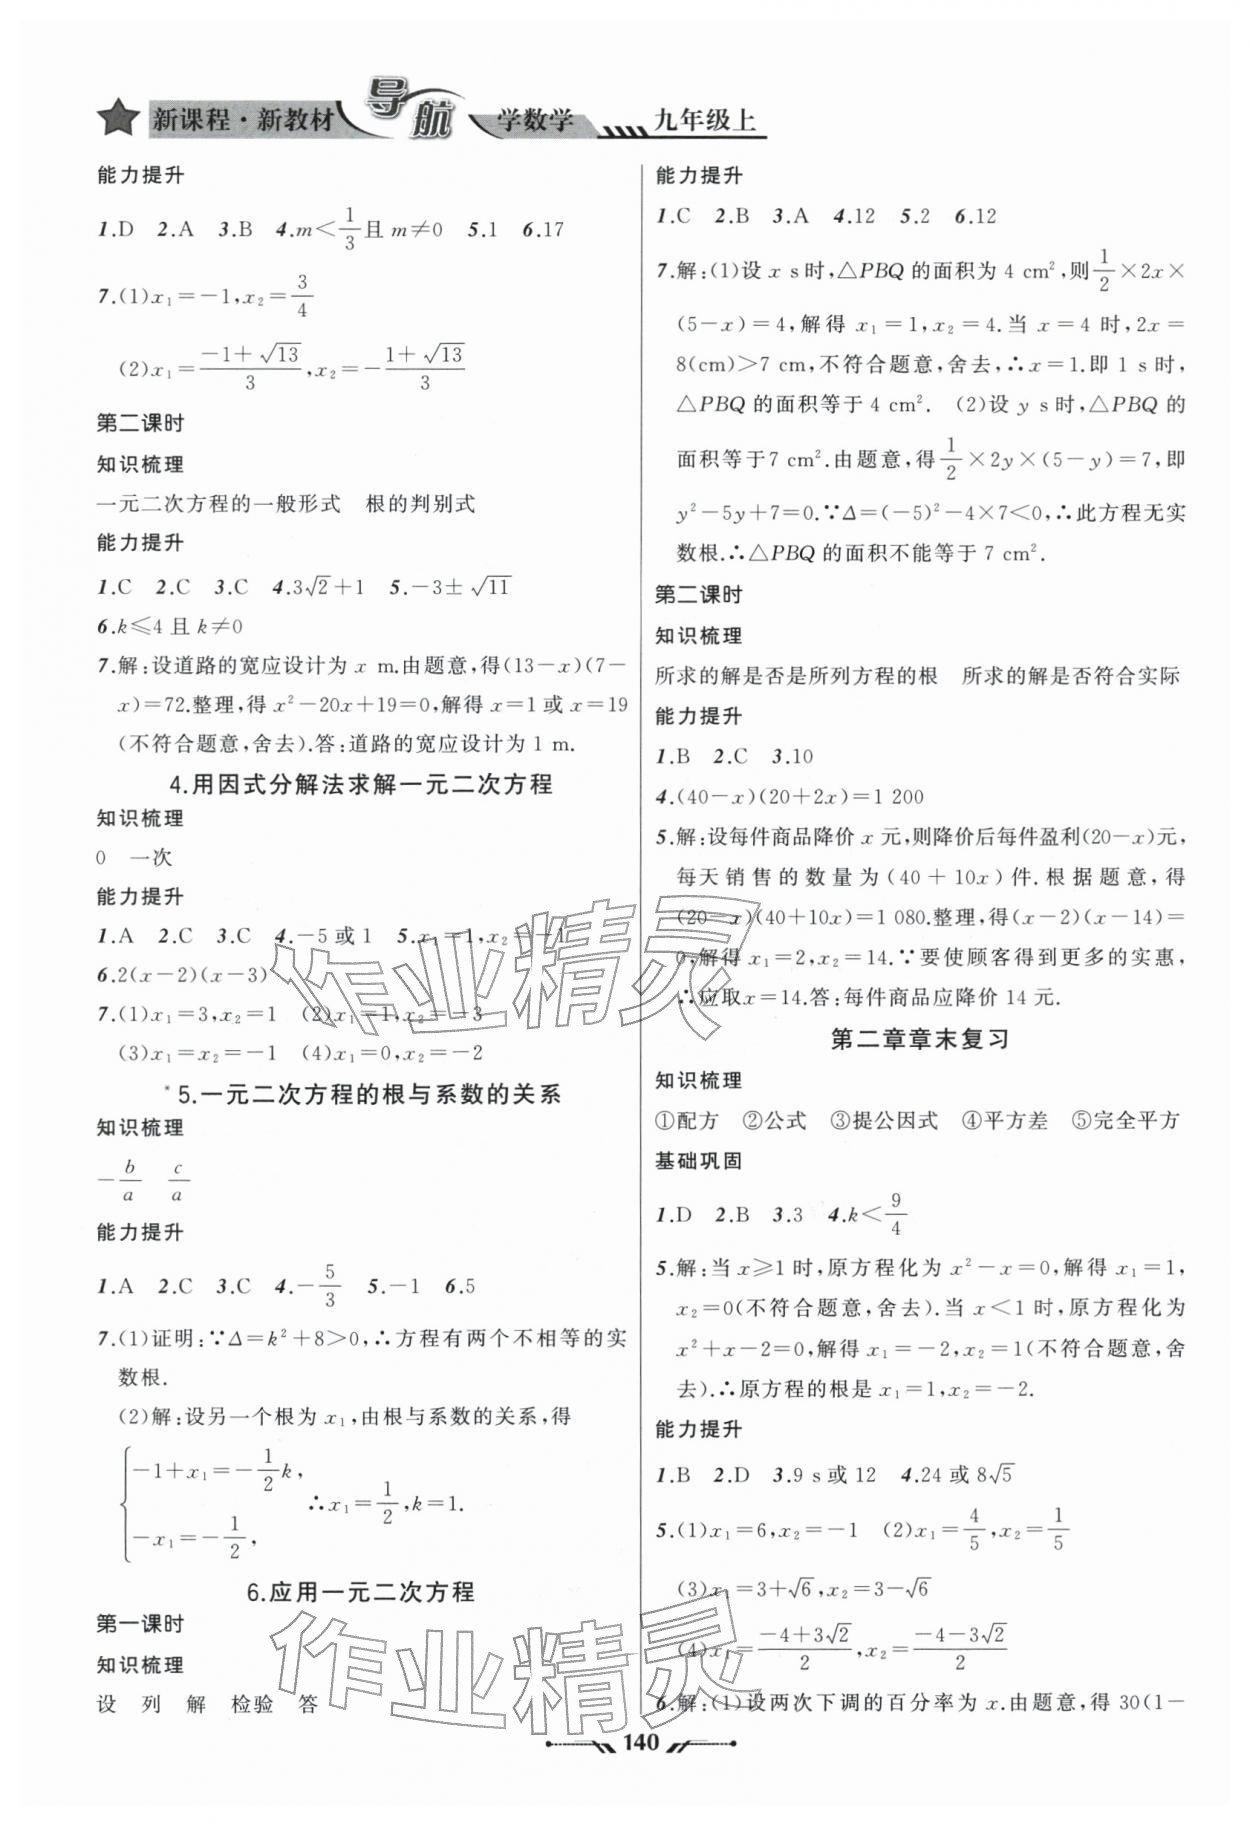 新课程·新教材 导航 学数学 九年级上
能力提升
1.D 2.A 3.B 4.m<1/3且 m≠0 5.1 6.17
7.(1)x₁=-1,x₂=3/4
(2)x₁=(-1+√13)/3,x₂=-(1+√13)/3
第二课时
知识梳理
一元二次方程的一般形式 根的判别式
能力提升
1.C 2.C 3.C 4.3√2+1 5.-3±√11
6.k≤4 且 k≠0
7.解:设道路的宽应设计为 x m.由题意,得(13-x)(7-
x)=72.整理,得 x²-20x+19=0,解得 x=1 或 x=19
(不符合题意,舍去).答:道路的宽应设计为 1 m.
4.用因式分解法求解一元二次方程
知识梳理
0 一次
能力提升
1.A 2.C 3.C 4.-5 或 1 5.x₁=1,x₂=-1
6.2(x-2)(x-3)
7.(1)x₁=3,x₂=1 (2)x₁=1,x₂=-3
(3)x₁=x₂=-1 (4)x₁=0,x₂=-2
*5.一元二次方程的根与系数的关系
知识梳理
-b/a c/a
能力提升
1.A 2.C 3.C 4.-5/3 5.-1 6.5
7.(1)证明:∵Δ=k²+8>0,∴方程有两个不相等的实
数根.
(2)解:设另一个根为 x₁,由根与系数的关系,得
{-1+x₁=-1/2k,
-x₁=-1/2, ∴x₁=1/2,k=1.
6.应用一元二次方程
第一课时
知识梳理
设 列 解 检验 答
能力提升
1.C 2.B 3.A 4.12 5.2 6.12
7.解:(1)设 x s时,△PBQ 的面积为 4 cm²,则1/2×2x×
(5-x)=4,解得 x₁=1,x₂=4.当 x=4 时,2x=
8(cm)>7 cm,不符合题意,舍去,∴x=1.即 1 s时,
△PBQ 的面积等于 4 cm². (2)设 y s时,△PBQ 的
面积等于7 cm².由题意,得1/2×2y×(5-y)=7,即
y²-5y+7=0.∵Δ=(-5)²-4×7<0,∴此方程无实
数根.∴△PBQ 的面积不能等于 7 cm².
第二课时
知识梳理
所求的解是否是所列方程的根 所求的解是否符合实际
能力提升
1.B 2.C 3.10
4.(40-x)(20+2x)=1 200
5.解:设每件商品降价 x 元,则降价后每件盈利(20-x)元,
每天销售的数量为(40+10x)件.根据题意,得
(20-x)(40+10x)=1 080.整理,得(x-2)(x-14)=
0,解得 x₁=2,x₂=14.∵要使顾客得到更多的实惠,
∴应取x=14.答:每件商品应降价 14 元.
第二章章末复习
知识梳理
①配方 ②公式 ③提公因式 ④平方差 ⑤完全平方
基础巩固
1.D 2.B 3.3 4.k<9/4
5.解:当 x≥1 时,原方程化为 x²-x=0,解得 x₁=1,
x₂=0(不符合题意,舍去).当 x<1 时,原方程化为
x²+x-2=0,解得 x₁=-2,x₂=1(不符合题意,舍
去).∴原方程的根是 x₁=1,x₂=-2.
能力提升
1.B 2.D 3.9 s或 12 4.24 或 8√5
5.(1)x₁=6,x₂=-1 (2)x₁=4/5,x₂=1/5
(3)x₁=3+√6,x₂=3-√6
(4)x₁=(-4+3√2)/2,x₂=(-4-3√2)/2
6.解:(1)设两次下调的百分率为 x.由题意,得 30(1-
140
作业精灵
作业精灵